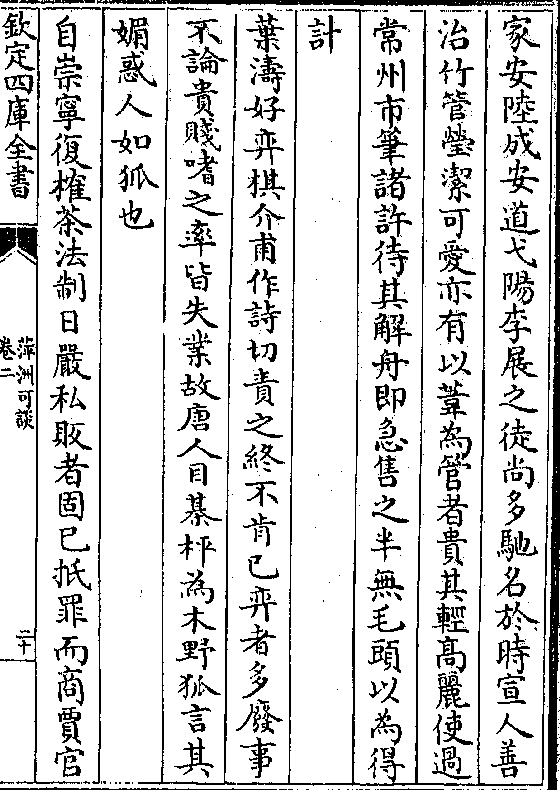 家安陸成安道弋陽李展之徒尚多馳名於時宣人善
治竹管瑩潔可愛亦有以葦為管者貴其輕髙麗使過
常州市筆諸許待其解舟即急售之半無毛頭以為得
計
葉濤好弈棋介甫作詩切責之終不肯已弈者多廢事
不論貴賤嗜之率皆失業故唐人目棊枰為木野狐言其
媚惑人如狐也
自崇寧復榷茶法制日嚴私販者固已抵罪而商賈官
欽定四庫全書
萍洲可談
卷二
二十